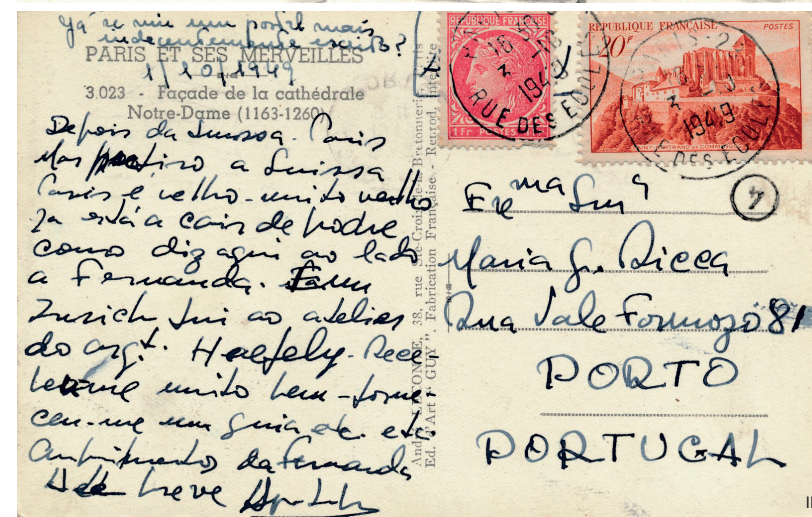 Já se viu um postal mais
indecentemente escrito?
1/10/1949
PARIS ET SES MERVEILLES
3.023 - Façade de la cathédrale
Notre-Dame (1163-1260)
Depois da Suissa - Paris
Mas prefiro a Suissa
Paris é velho - muito velho
Já está a cair de podre
como diz aqui ao lado
a Fernanda. Em
Zurich fui ao atelier
do arqt. Haefely. Rece
beu-me muito bem - forne
ceu-me um guia etc. etc.
Cumprimentos da Fernanda
Até breve
André LECONTE, 38, rue Ste-Croix-de-la-Bretonnerie, Paris
Ed. d'Art "GUY". Fabrication Française. - Reprod. interdite
RÉPUBLIQUE FRANÇAISE
1 Fr POSTES
RÉPUBLIQUE FRANÇAISE POSTES
20F
1949
RUE DES
1949
DES
4
Exma Snra
Maria G. Ricca
Rua Vale Formozo 81
PORTO
PORTUGAL